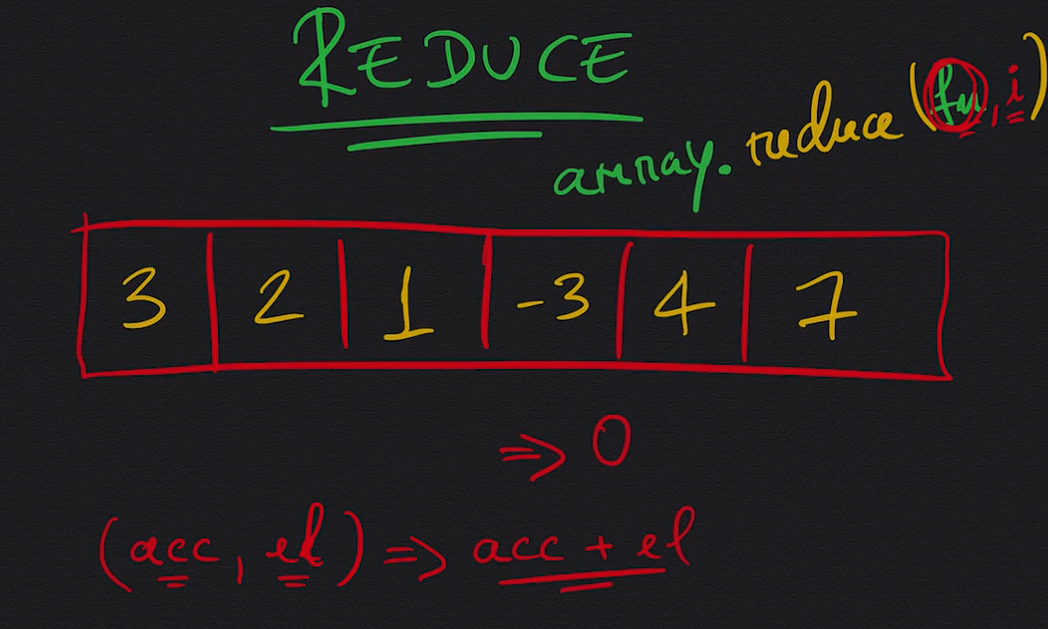 REDUCE
array.reduce(fn, i)
3 2 1 -3 4 7
=> 0
(acc, el) => acc + el